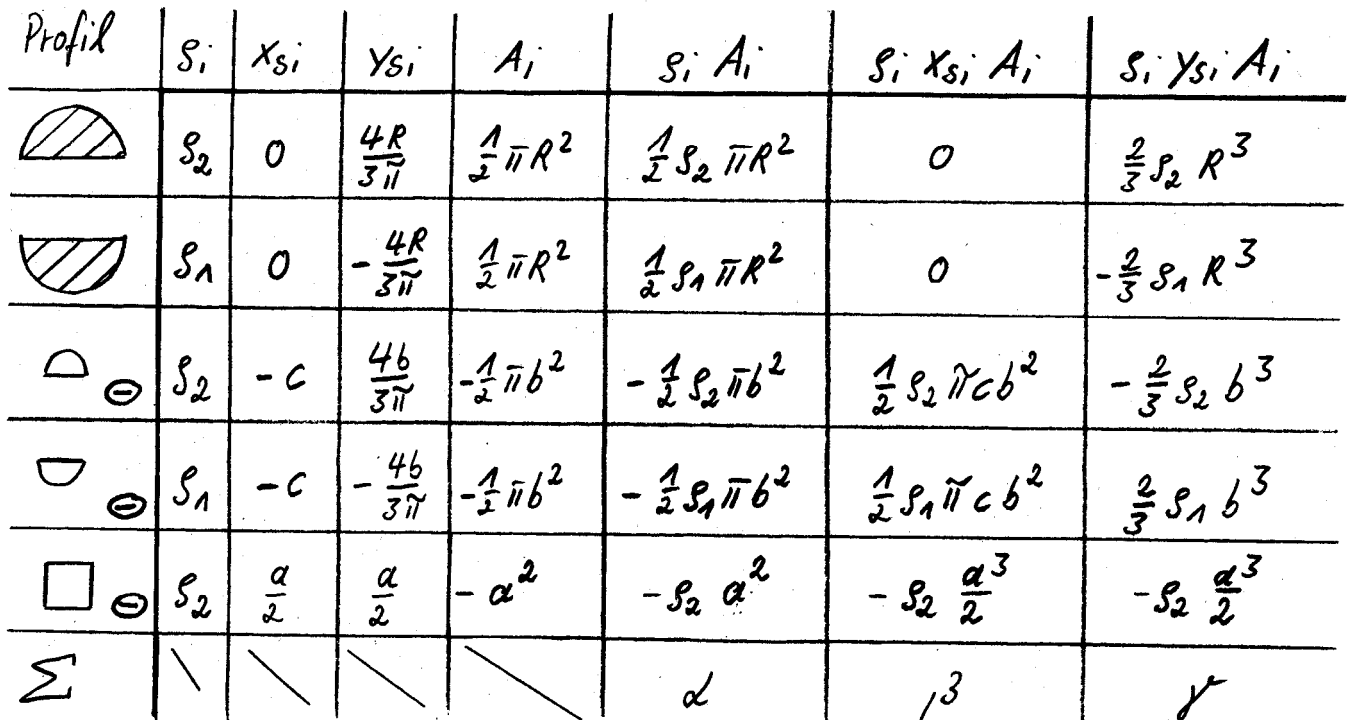 Profil ρi xSi ySi Ai ρi Ai ρi xSi Ai ρi ySi Ai
ρ2 0 4R/3π 1/2 πR² 1/2 ρ2 πR² 0 2/3 ρ2 R³
ρ1 0 -4R/3π 1/2 πR² 1/2 ρ1 πR² 0 -2/3 ρ1 R³
⊖ ρ2 -c 4b/3π -1/2 πb² -1/2 ρ2 πb² 1/2 ρ2 πcb² -2/3 ρ2 b³
⊖ ρ1 -c -4b/3π -1/2 πb² -1/2 ρ1 πb² 1/2 ρ1 πcb² 2/3 ρ1 b³
⊖ ρ2 a/2 a/2 -a² -ρ2 a² -ρ2 a³/2 -ρ2 a³/2
Σ \ \ \ \ α β γ